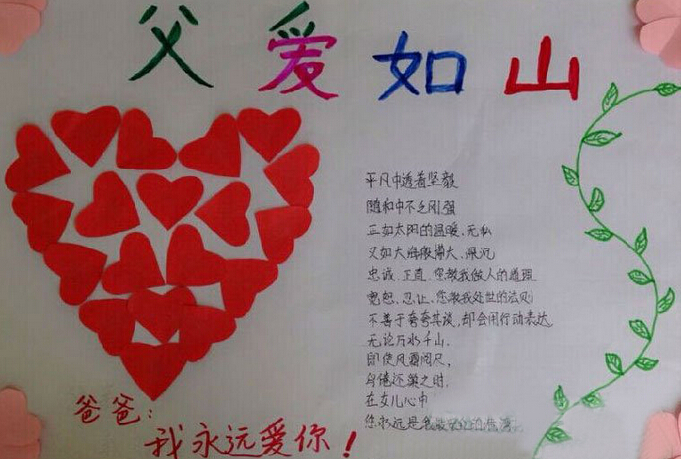 父爱如山
平凡中透着坚毅
随和中不乏刚强
正如太阳的温暖、无私
又如大海般博大、深沉
忠诚、正直、您教我做人的道理
宽恕、忍让、您教我处世的法则
不善于夸夸其谈,却会用行动表达
无论万水千山,
即使风霜
之时,
在女儿心中
您永远是我
爸爸:
我永远爱你!